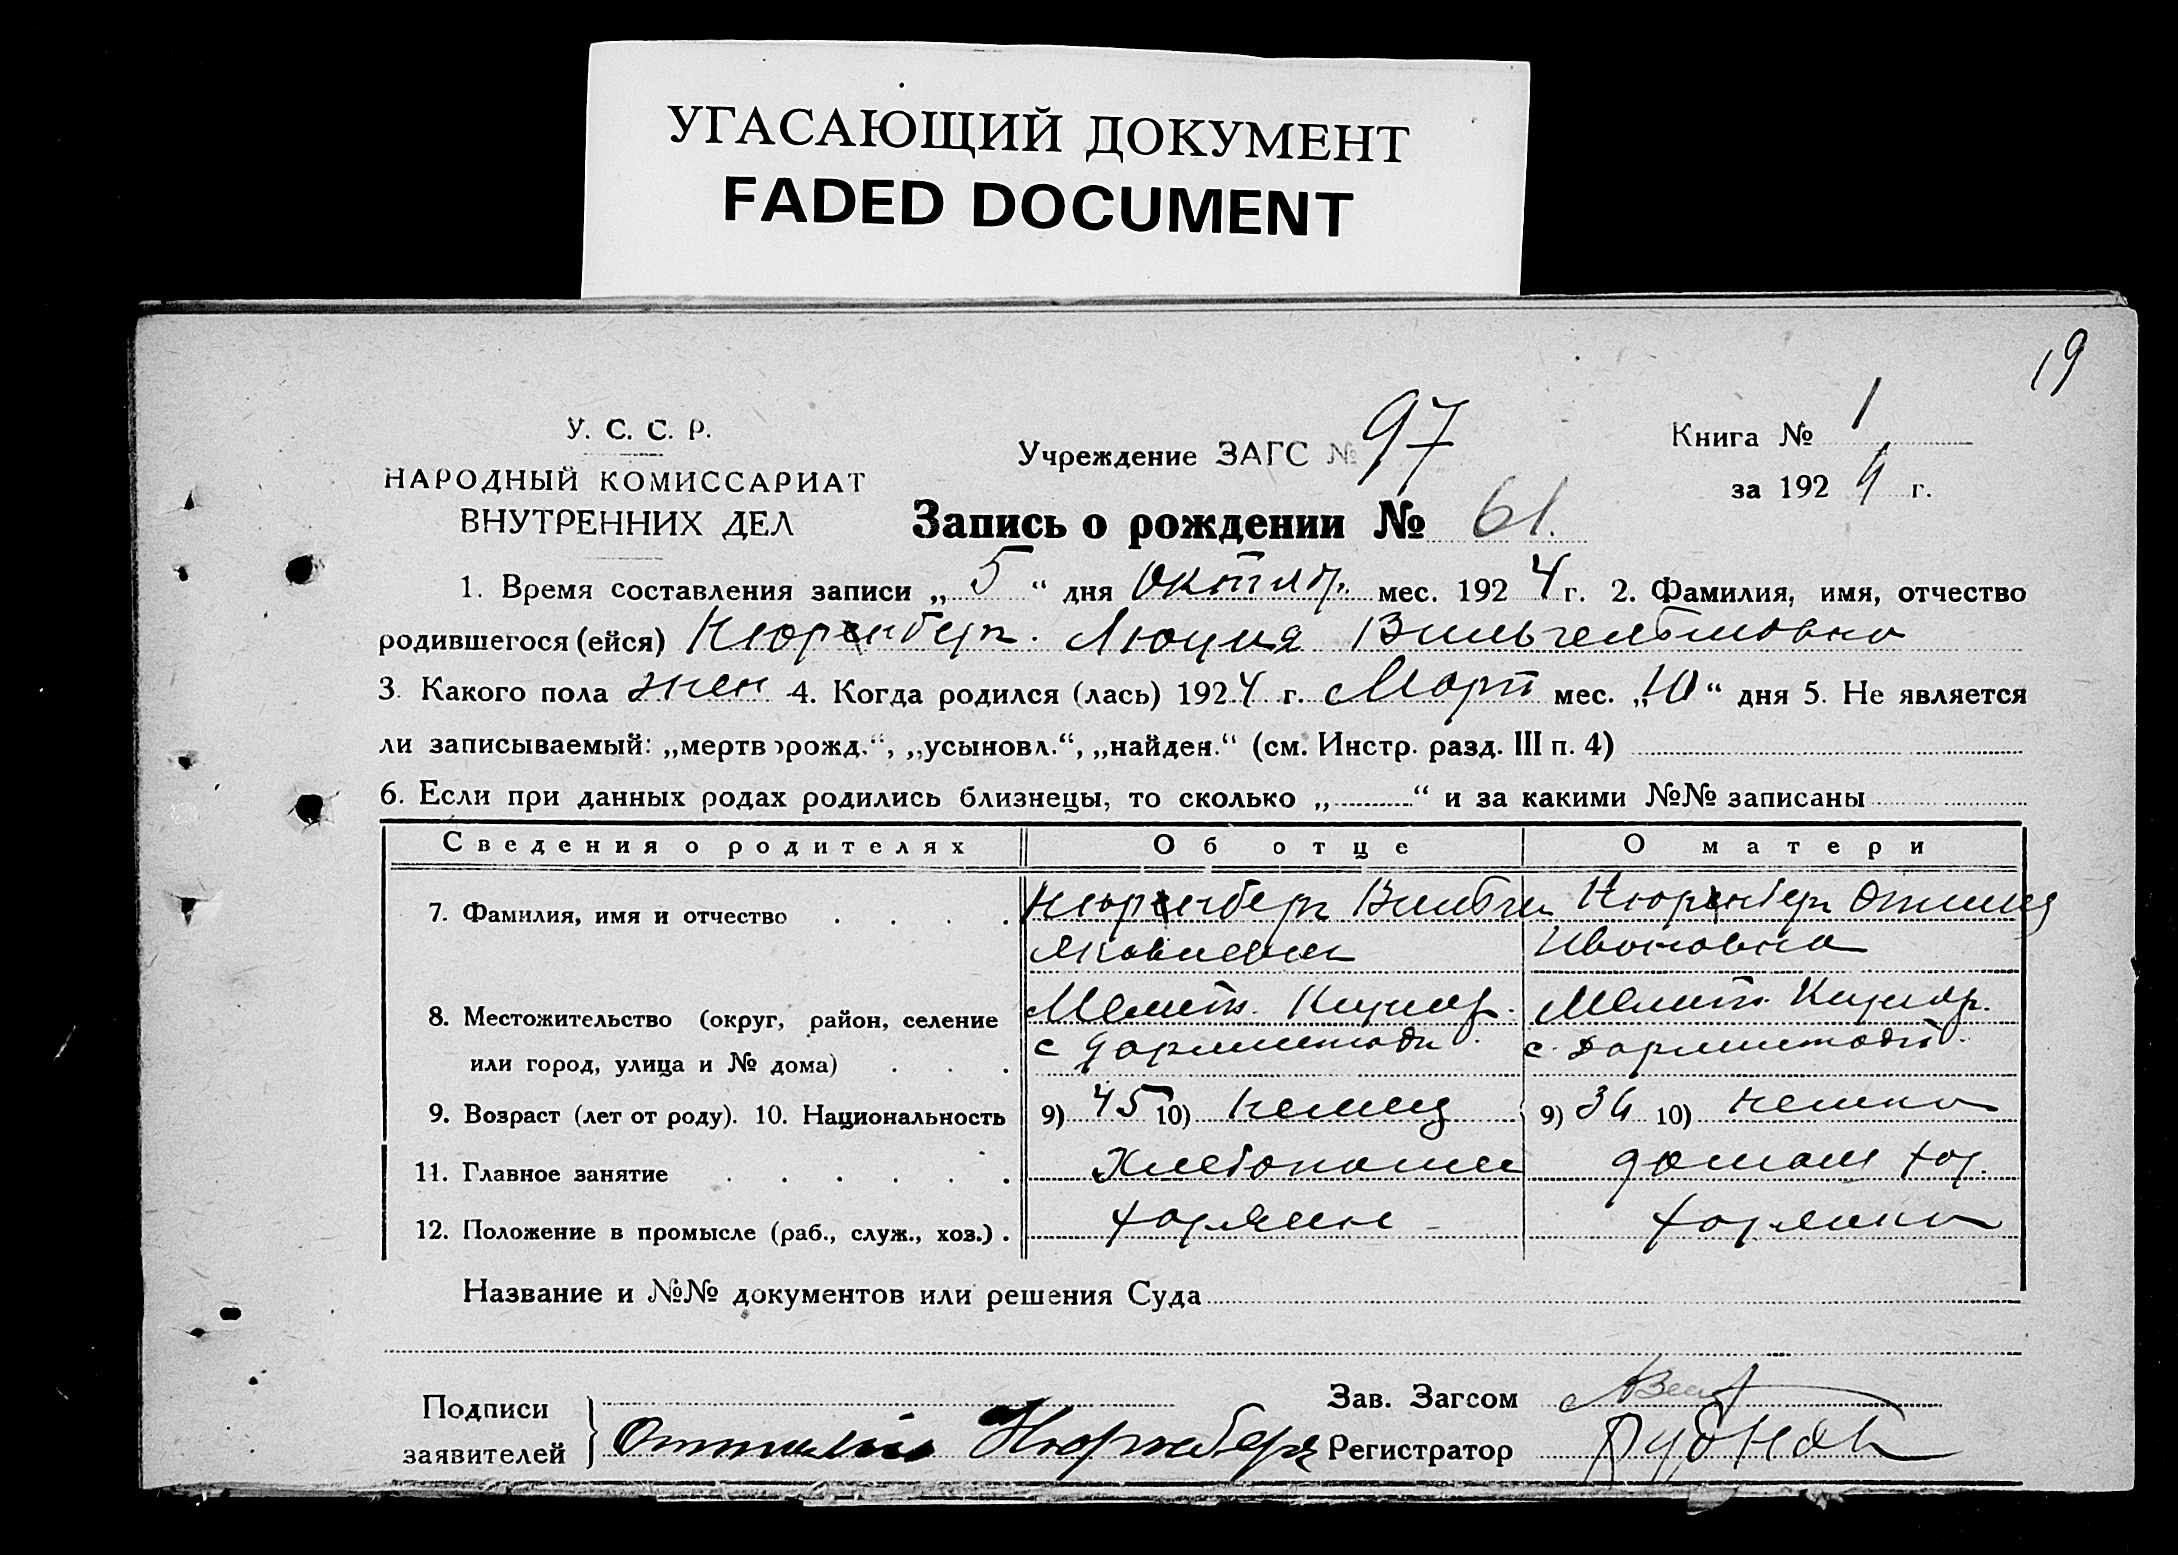 УГАСАЮЩИЙ ДОКУМЕНТ
FADED DOCUMENT
19
У. С. С. Р.
НАРОДНЫЙ КОМИССАРИАТ
ВНУТРЕННИХ ДЕЛ
Учреждение ЗАГС № 97
Книга № 1
за 1924 г.
Запись о рождении № 61.
1. Время составления записи „ 5 “ дня Октябр. мес. 1924 г. 2. Фамилия, имя, отчество
родившегося (ейся) Нюренберг. Люция Вильгельмовна
3. Какого пола жен 4. Когда родился (лась) 1924 г. Март мес. „10“ дня 5. Не является
ли записываемый: „мертворожд.“, „усыновл.“, „найден.“ (см. Инстр. разд. III п. 4)
6. Если при данных родах родились близнецы, то сколько „ “ и за какими №№ записаны
Сведения о родителях Об отце О матери
7. Фамилия, имя и отчество Нюренберг Вильгел Нюренберг
Яковлевич Ивановна
8. Местожительство (округ, район, селение Мелит. Кизияр. Мелит. Кизияр.
или город, улица и № дома) с Дармштадт. с. Дармштадт.
9. Возраст (лет от роду). 10. Национальность 9) 45 10) немец 9) 34 10) немка
11. Главное занятие Хлебопашец домаш хоз.
12. Положение в промысле (раб., служ., хоз.) хозяин хозяйка
Название и №№ документов или решения Суда
Подписи
заявителей } Оттилия Нюрнберг
Зав. Загсом
Регистратор